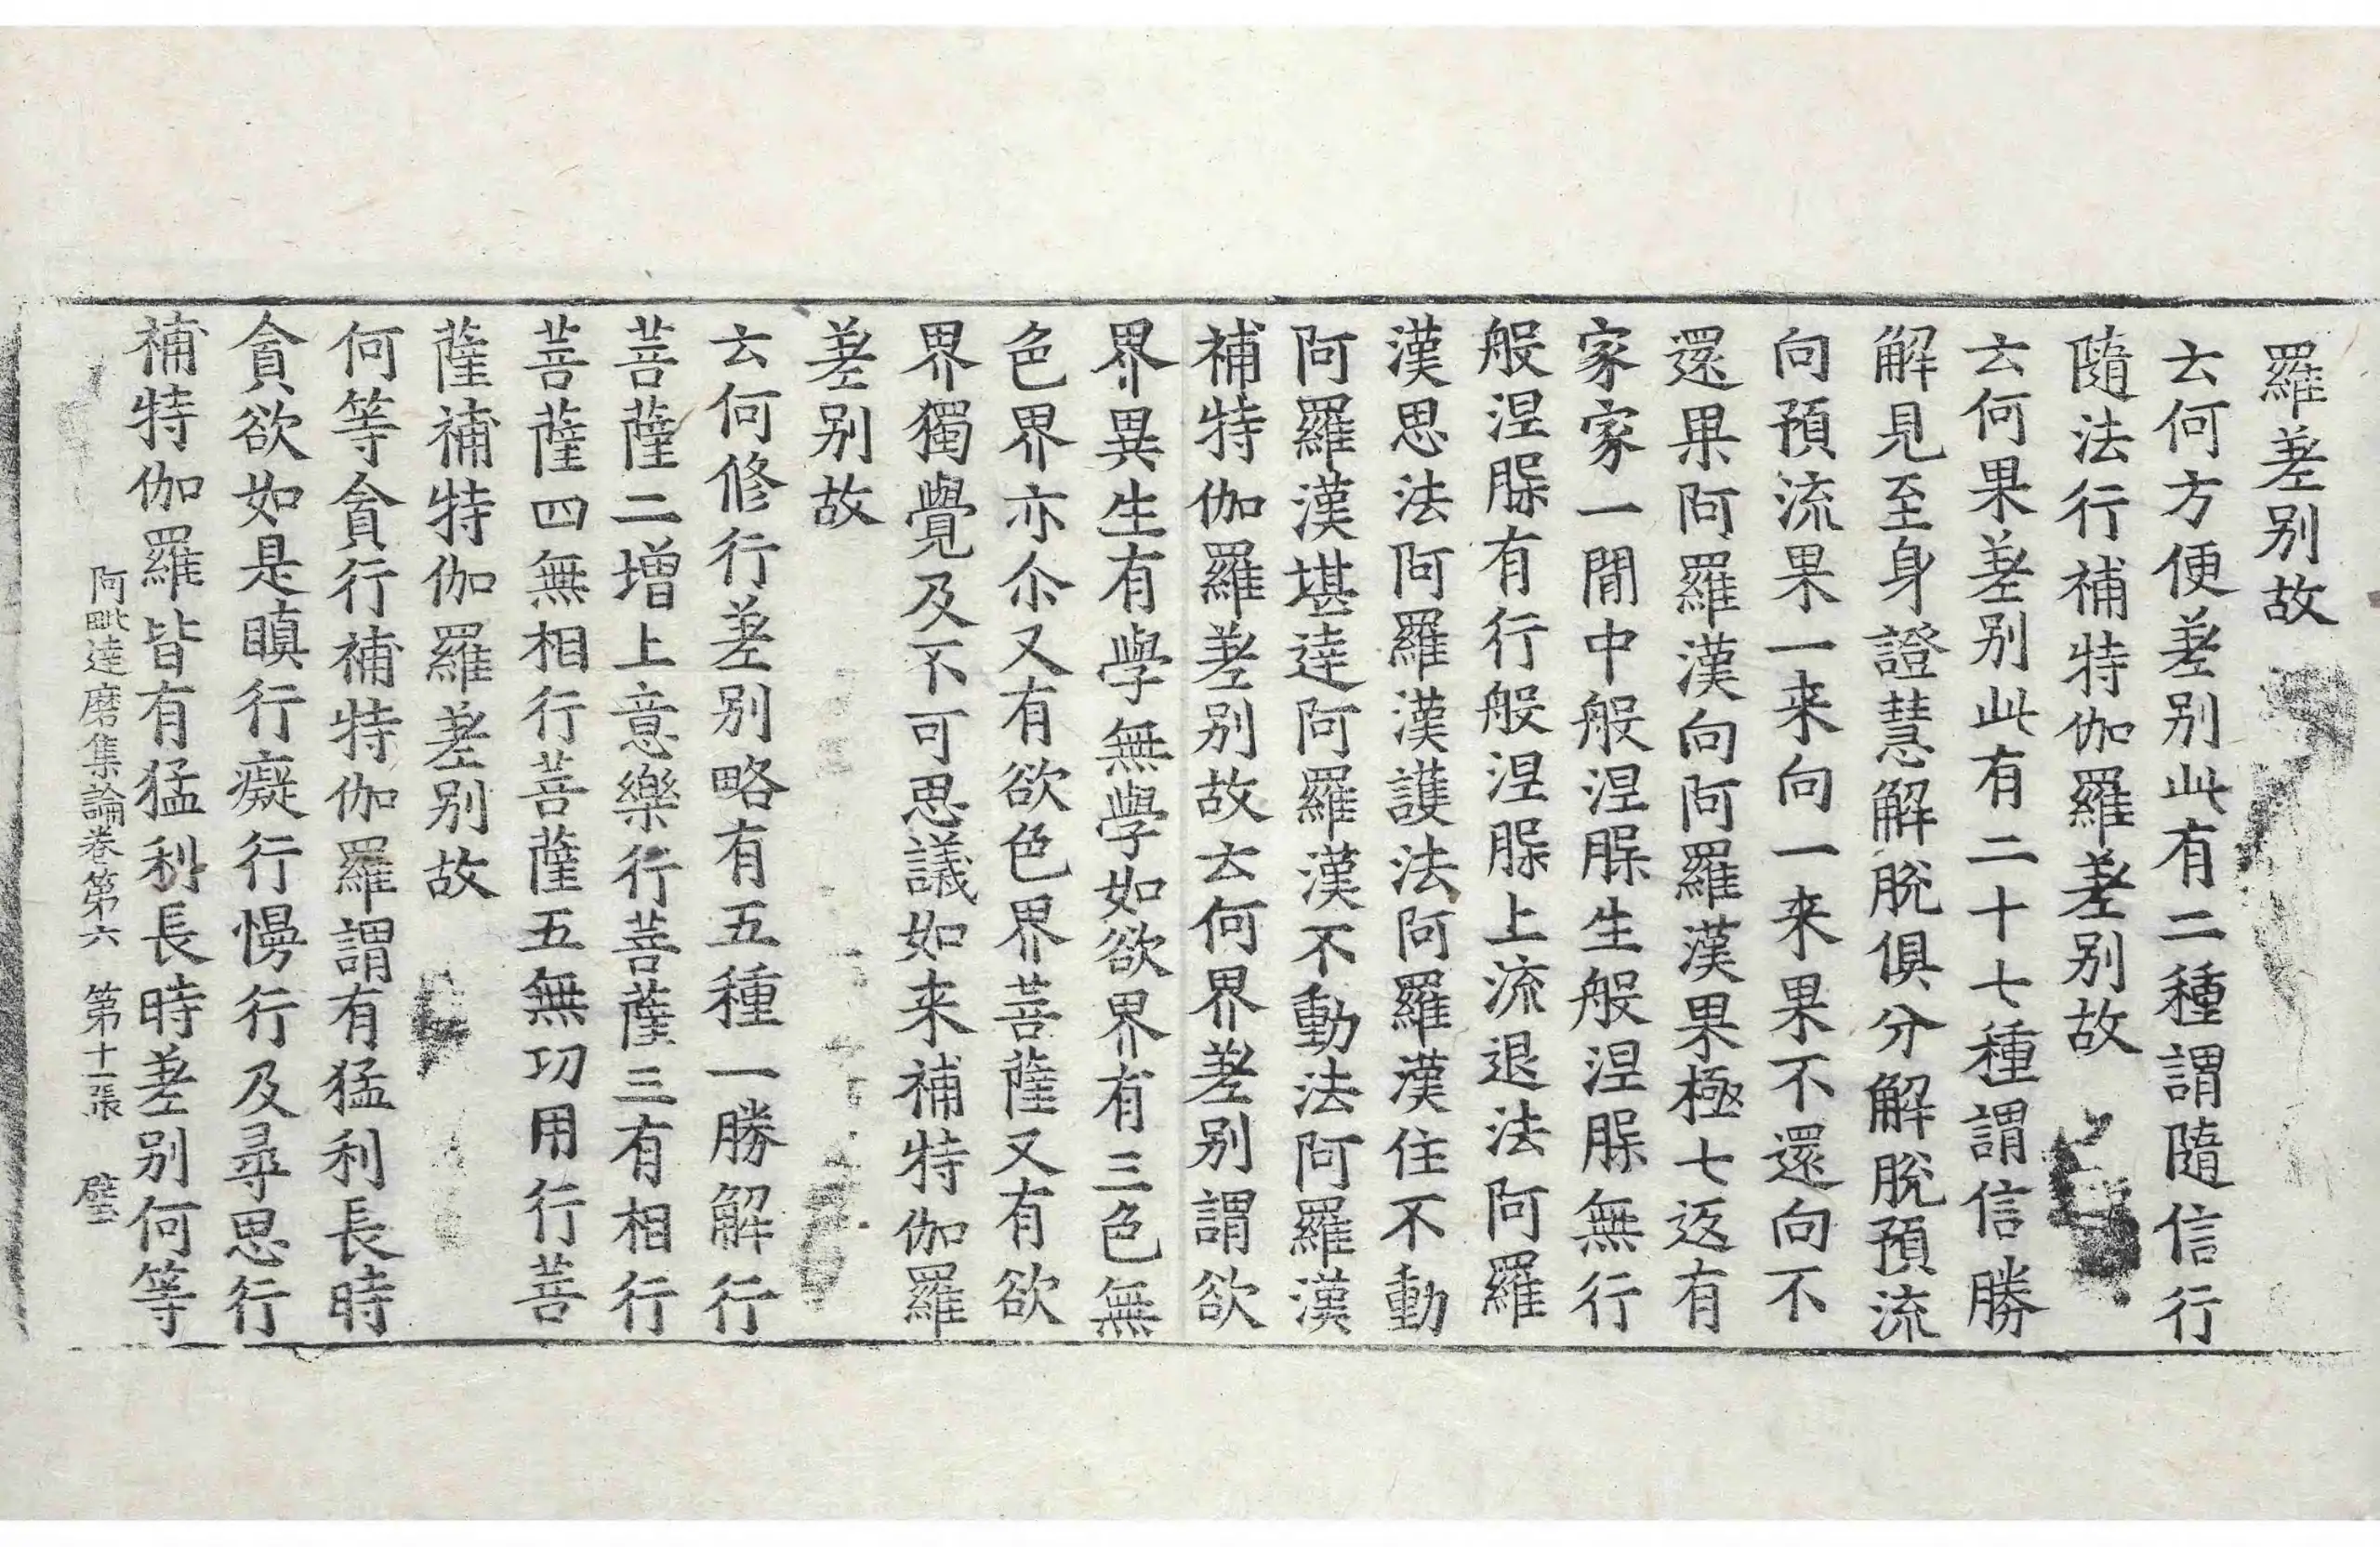 羅差别故
云何方便差别此有二種謂隨信行
隨法行補特伽羅差别故
云何果差别此有二十七種謂信勝
解見至身證慧解脫俱分解脫預流
向預流果一来向一来果不還向不
還果阿羅漢向阿羅漢果極七返有
家家一閒中般涅脲生般涅脲無行
般涅脲有行般涅脲上流退法阿羅
漢思法阿羅漢護法阿羅漢住不動
阿羅漢堪達阿羅漢不動法阿羅漢
補特伽羅差别故云何界差别謂欲
界異生有學無學如欲界有三色無
色界亦尒又有欲色界菩薩又有欲
界獨覺及不可思議如来補特伽羅
差别故
云何修行差别略有五種一勝解行
菩薩二增上意樂行菩薩三有相行
菩薩四無相行菩薩五無功用行菩
薩補特伽羅差别故
何等貪行補特伽羅謂有猛利長時
貪欲如是瞋行癡行慢行及尋思行
補特伽羅皆有猛利長時差别何等
阿毗達磨集論卷第六 第十一張 璧